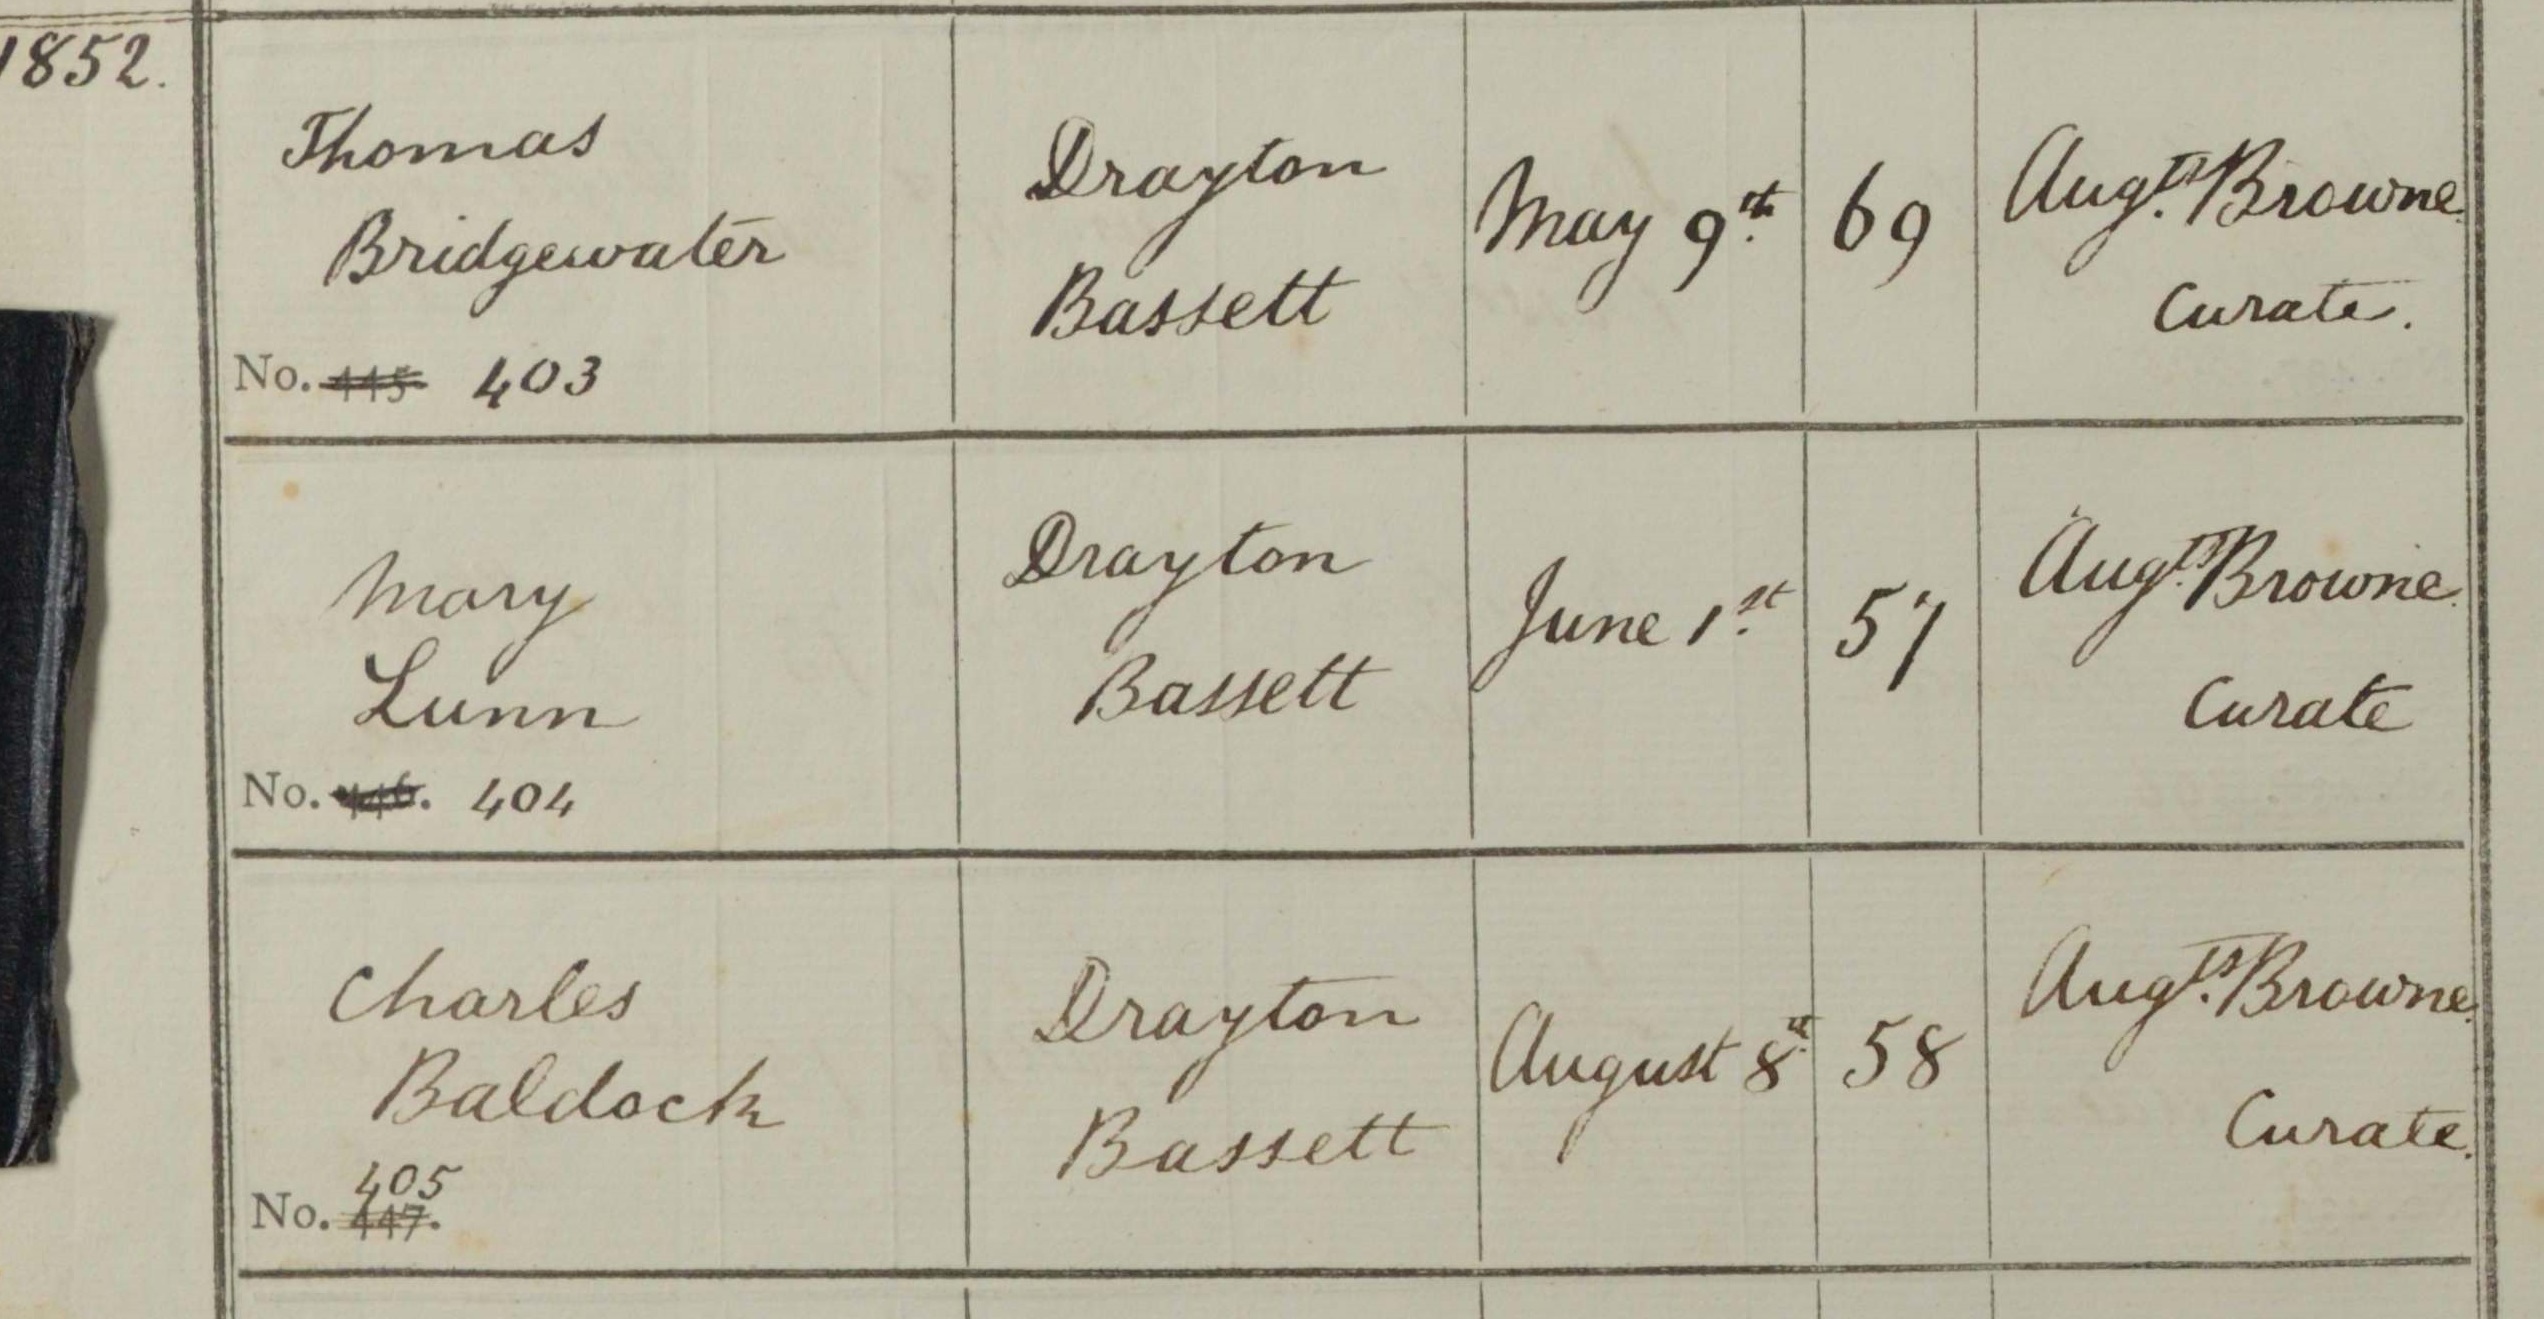 1852.
Thomas
Bridgewater
No. 445. 403
Drayton
Bassett
May 9th
69
Augts. Browne.
Curate.
Mary
Lunn
No. 446. 404
Drayton
Bassett
June 1st
57
Augts. Browne.
Curate
Charles
Baldock
405
No. 447.
Drayton
Bassett
August 8th
58
Augts. Browne.
Curate.